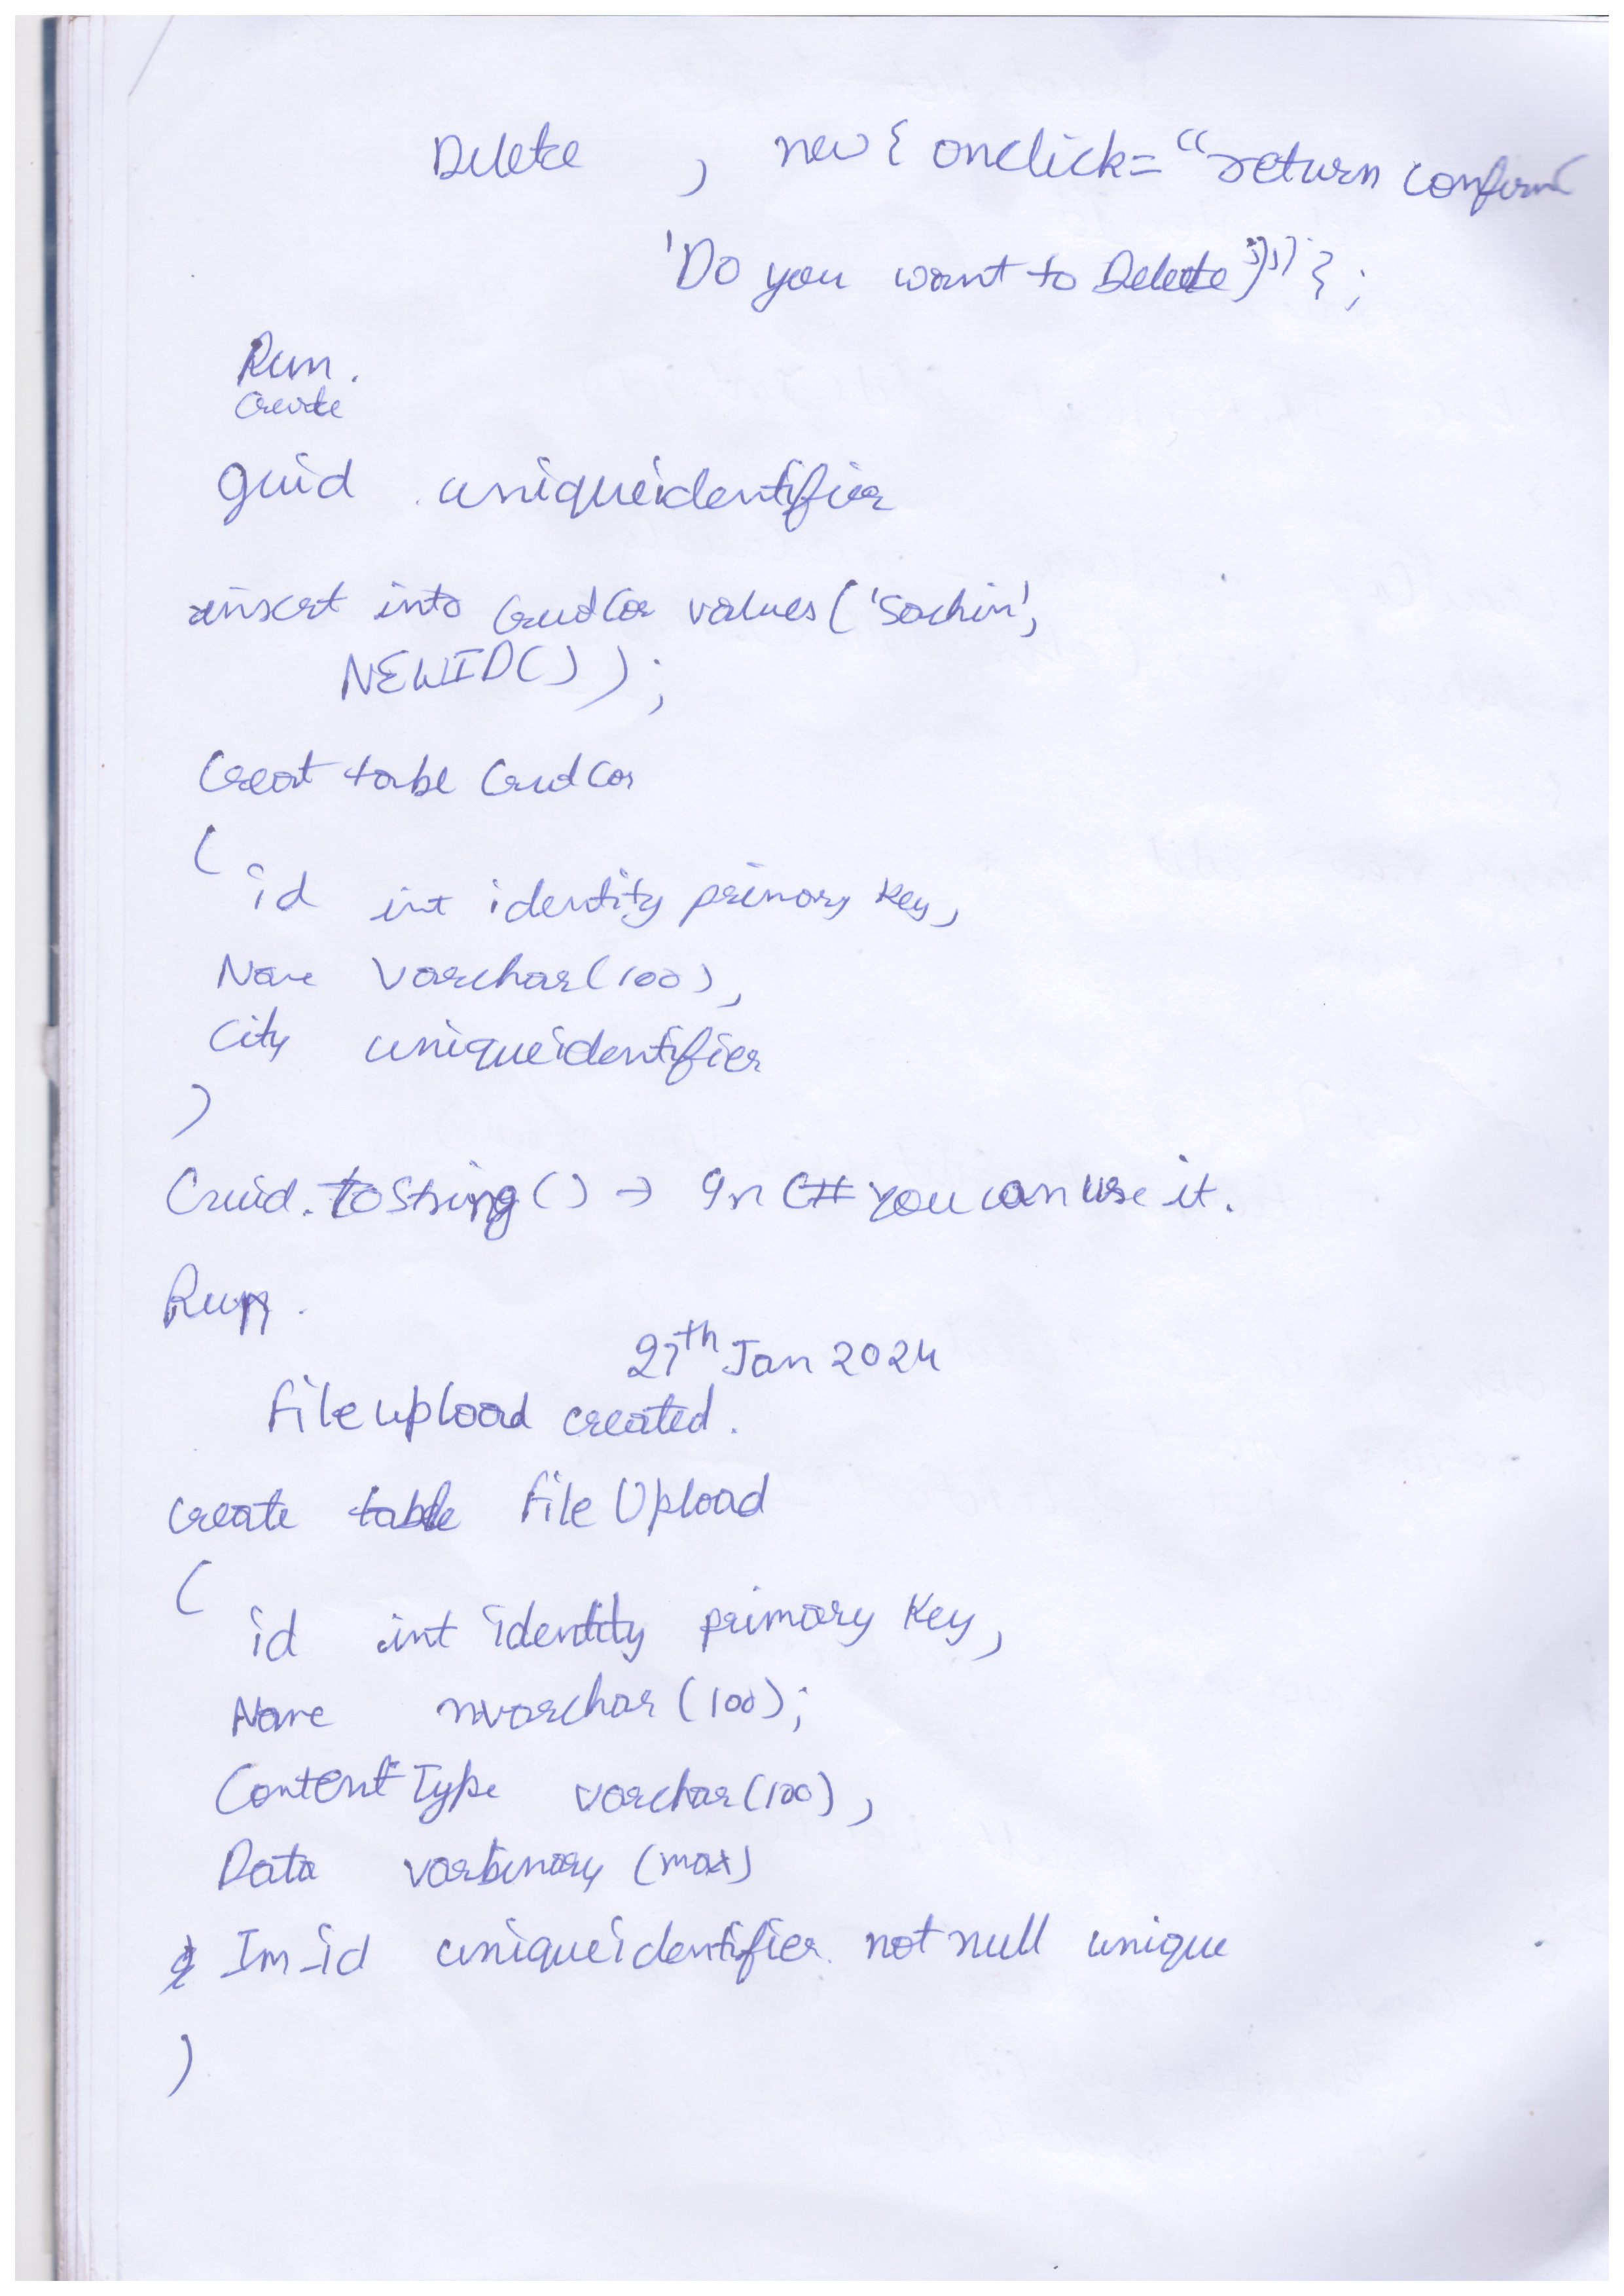 Delete , new { onclick= "return confirm(
'Do you want to Delete')"};
Run.
Create
guid uniqueidentifier
insert into values('Sachin',
NEWID());
Creat tabl
(
id int identity primary key,
Name Varchar(100),
City uniqueidentifier
)
Guid.ToString() → In C# you can use it.
Run.
27th Jan 2024
File upload created.
create table File Upload
(
id int identity primary Key,
Name nvarchar (100);
Content Type varchar(100),
Data varbinary (max)
Im_id uniqueidentifier not null unique
)